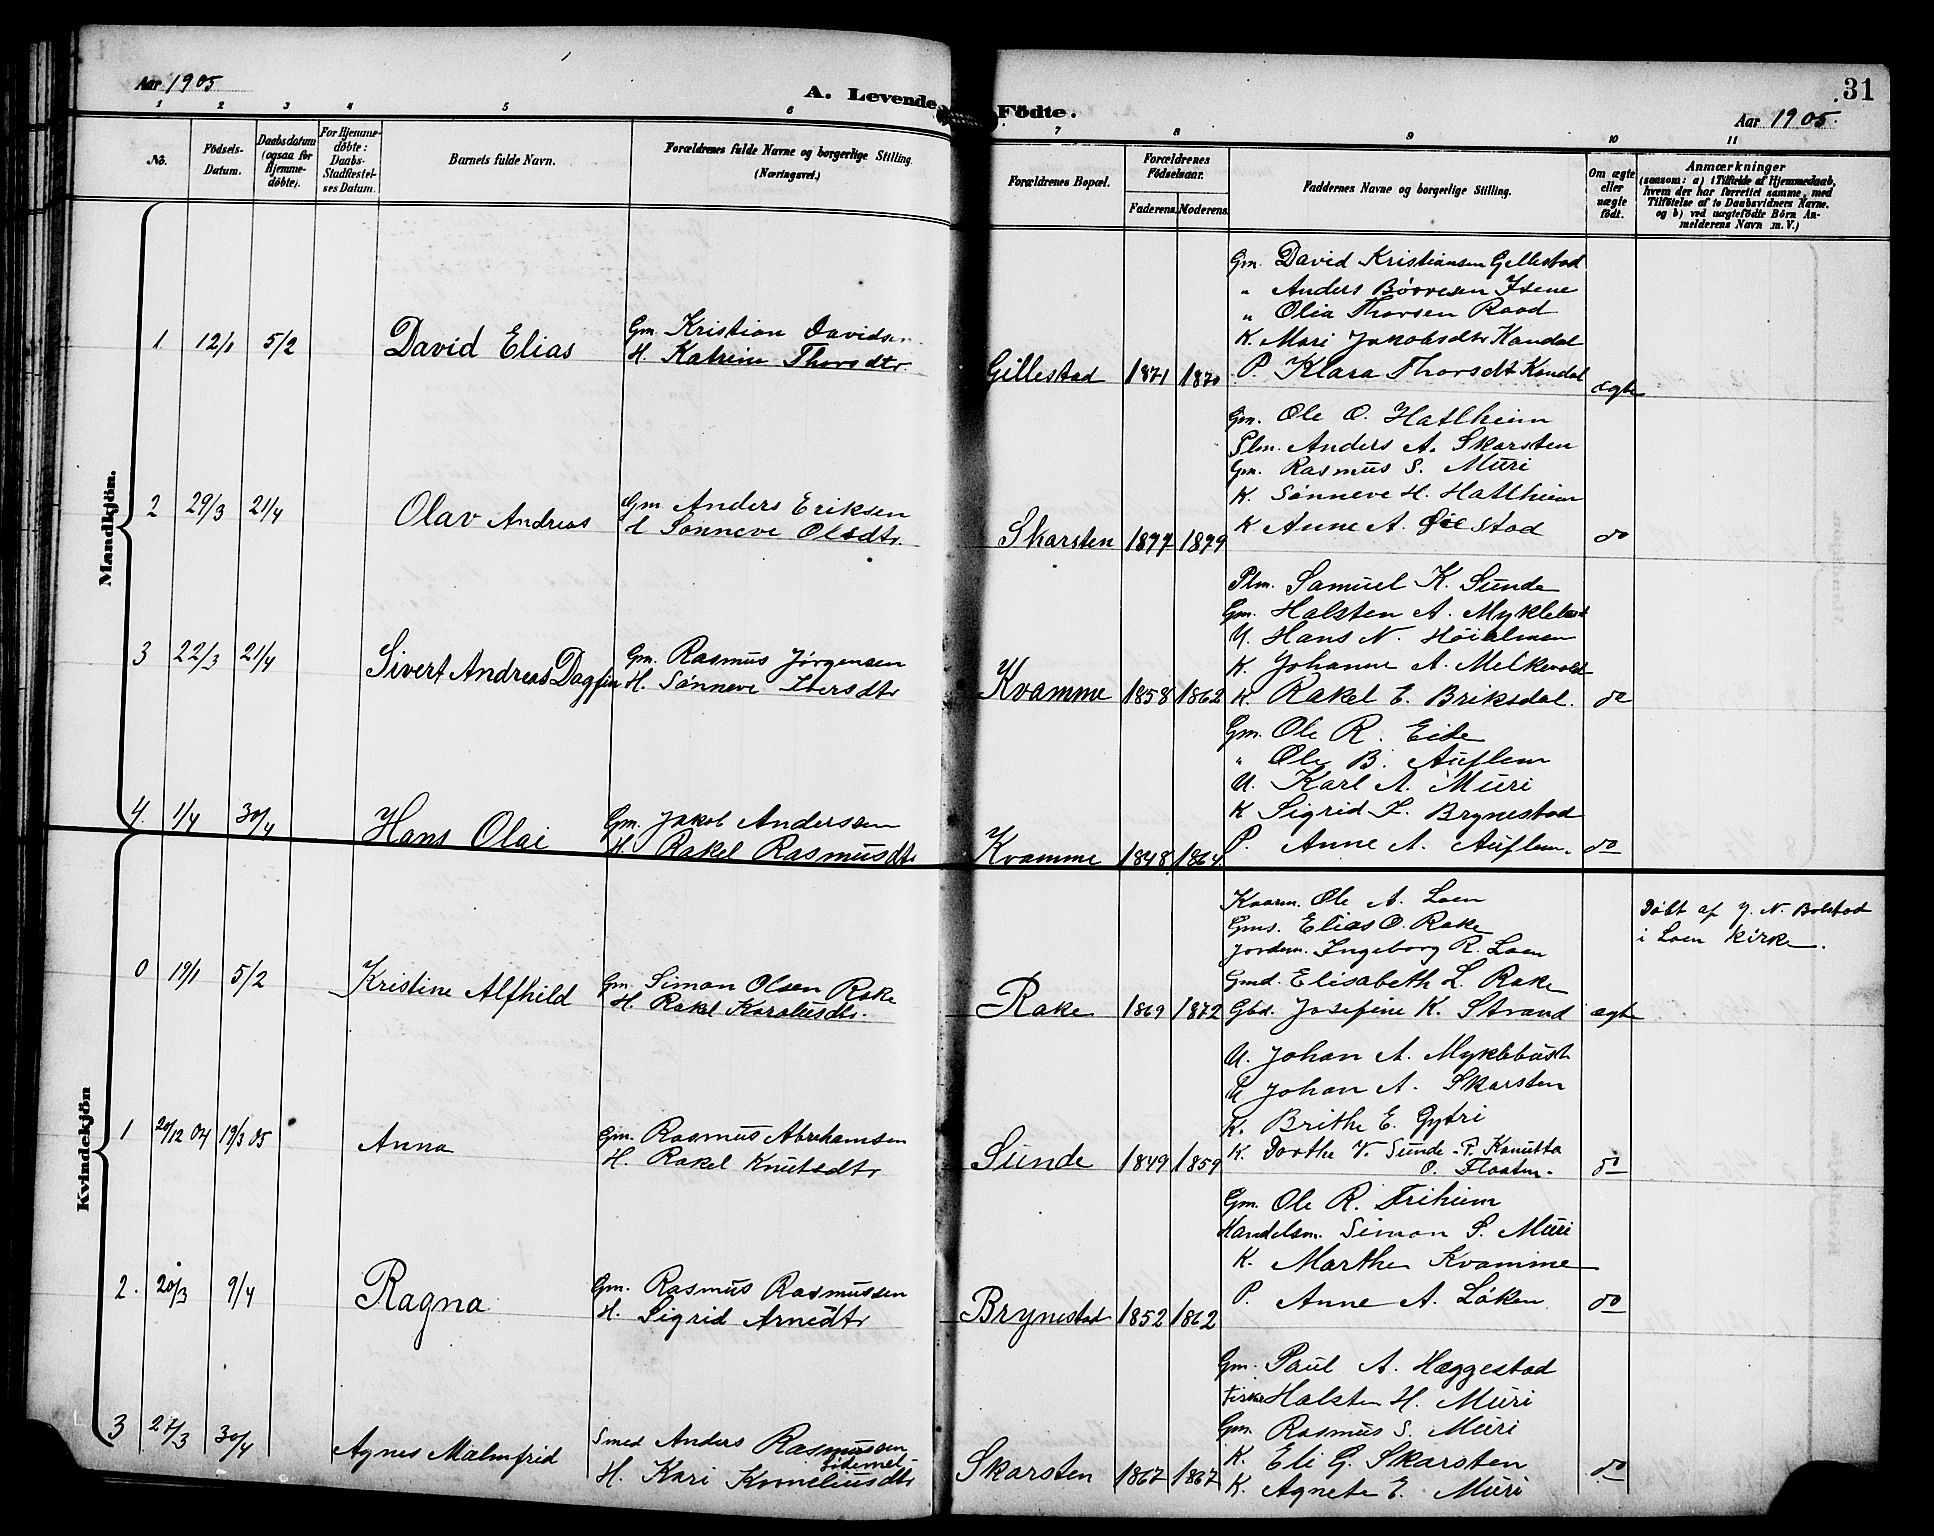 Aar 1905
A. Levende Födte.
31
Aar 1905.
1 2 3 4 5 6 7 8 9 10 11
No.
Födsels-Datum.
Daabsdatum (ogsaa for Hjemme-döbte).
For Hjemme-döbte: Daabs-Stadfæstel-ses Datum.
Barnets fulde Navn.
Forældrenes fulde Navne og borgerlige Stilling.
(Næringsvei.)
Forældrenes Bopæl.
Forældrenes Födselsaar.
Faderens. Moderens.
Faddernes Navne og borgerlige Stilling.
Om ægte eller uægte födt.
Anmærkninger
(saasom: a) i Tilfælde af Hjemmedaab,
hvem der har forrettet samme, med
Tilföielse af to Daabsvidners Navne.
og b) ved uægtefödte Börn An-
melderens Navn m. V.)
Mandkjön.
1 12/1 5/2 David Elias
Gm. Kristian Davidsen
H. Katrine Thorsdtr.
Gillestad 1871 1870
Gm. David Kristiansen Gellestad
" Anders Børresen Isene
" Olia Thorsen Raad
K. Mari Jakobsdtr Kandal
P. Klara Thorsdt Kandal
ægte
2 29/3 21/4 Olav Andreas
Gm Anders Eriksen
H Sønneve Olsdtr.
Skarsten 1877 1879
Gm. Ole O. Hatlheim
Plm. Anders A. Skarsten
Gm. Rasmus S. Muri
K. Sønneve H. Hatlheim
K Anne A. stad
do
3 22/3 21/4 Sivert Andreas Dagfin
Gm. Rasmus Jørgensen
H. Sønneve Iversdtr
Kvamme 1858 1862
Plm. Samuel K. Sunde
Gm. Halsten A. Myklebust
U. Hans N. Høialmen
K. Johanne A. Melkevold
K. Rakel E. Briksdal.
do
4. 1/4 30/4 Hans Olai
Gm. Jakob Anderssen
H. Rakel Rasmusdtr
Kvamme 1848 1864.
Gm. Ole R. Eide
" Ole B. Auflem
U. Karl A. Muri
K Sigrid I. Brynestad
P. Anne A. Auflem.
do
Kvindekjön
0 19/1 5/2 Kristine Alfhild
Gm. Simon Olsen Rake
H. Rakel Karolusdtr.
Rake 1869 1872
Kaarm. Ole A. Loen
Gms. Elias O. Rake
Jordem. Ingeborg R. Loen
Gmd. Elisabeth L. Rake
Gbd. Josefine K. Strand
ægte
Døbt af J. N. Bolstad
i Loen Kirke.
1 20/12 04 19/3 05 Anna
Gm. Rasmus Abrahamsen
H. Rakel Knutsdtr
Sunde 1849 1859
U. Johan A. Myklebust
U Johan A. Skarsten
K. Brithe E. Gytri
K. Dorthe V. Sunde - P. Kanutta
O. Flaaten.
do
2. 20/3 9/4 Ragna
Gm. Rasmus Rasmussen
H. Sigrid Arnedtr
Brynestad 1852 1862
Gm. Ole R. Friheim
Handelsm. Simon S. Muri
K. Marthe Kvamme
P. Anne A. Løken
do
3 27/3 30/4 Agnes Malmfrid
Smed Anders Rasmussen
H. Kari Korneliusdtr
Skarsten 1867 1867
Gm. Paul A. Hæggestad
Halsten H. Muri
Gm. Rasmus S. Muri
K. Eli G. Skarsten
K. Agnete E. Muri
do